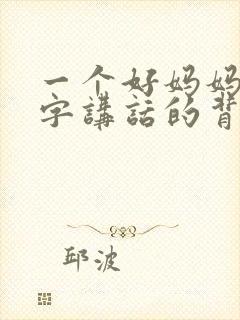 一个好妈妈
字講話的背
邱波